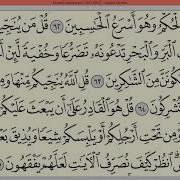 ٱلْحُكْمُ وَهُوَ أَسْرَعُ ٱلْحَـٰسِبِينَ ٦٢ قُلْ مَن يُنَجِّيكُم
ٱلْبَرِّ وَٱلْبَحْرِ تَدْعُونَهُۥ تَضَرُّعًا وَخُفْيَةً لَّئِنْ
مِنَ ٱلشَّـٰكِرِينَ ٦٣ قُلِ ٱللَّهُ يُنَجِّيكُم مِّنْهَا
٦٤ قُلْ هُوَ ٱلْقَادِرُ عَلَىٰٓ أَن يَبْعَثَ عَلَيْكُمْ
مِن تَحْتِ أَرْجُلِكُمْ أَوْ يَلْبِسَكُمْ شِيَعًا وَيُذِيقَ
ٱنظُرْ كَيْفَ نُصَرِّفُ ٱلْـَٔايَـٰتِ لَعَلَّهُمْ يَفْقَهُونَ